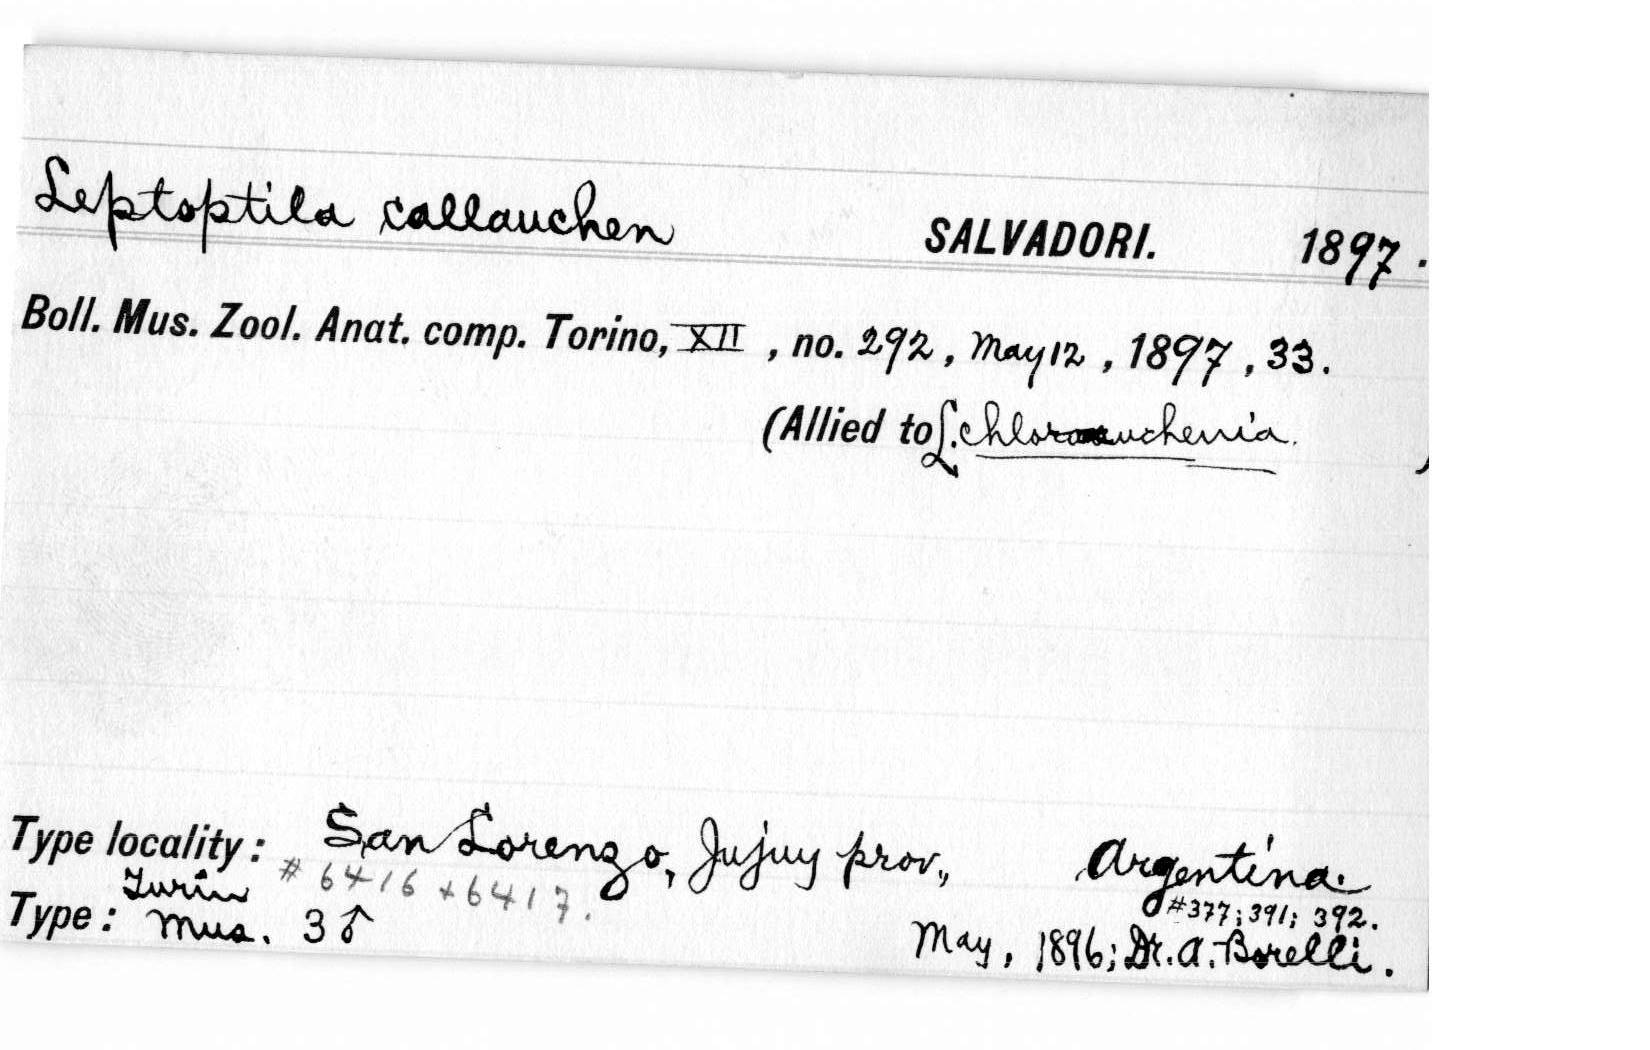 Leptoptila callauchen SALVADORI. 1897.
Boll. Mus. Zool. Anat. comp. Torino, XII, no. 292, May 12, 1897, 33.
(Allied to L. chlorauchenia. )
Type locality: San Lorenzo, Jujuy prov., Argentina.
# 6416 + 6417. #377; 391; 392.
Type: Turin Mus. 3♂ May, 1896; Dr. A. Borelli.